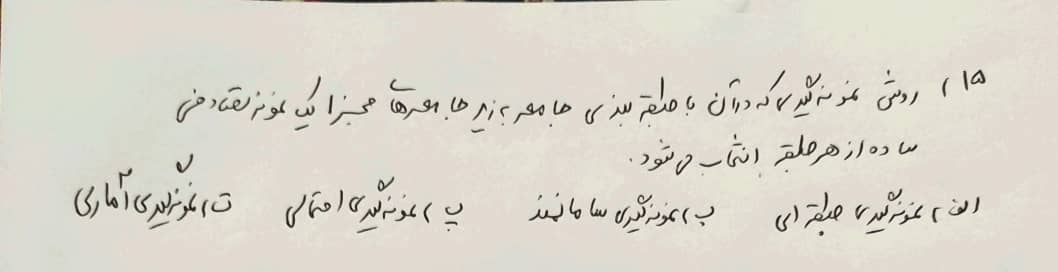 ۱۵) روش نمونه‌گیری که در آن با طبقه بندی جامعه به زیر جامعه‌های مجزا یک نمونه تصادفی
ساده از هر طبقه انتخاب می‌شود.
الف) نمونه‌گیری طبقه‌ای ب) نمونه‌گیری سامانمند پ) نمونه‌گیری احتمالی ت) نمونه‌گیری آماری